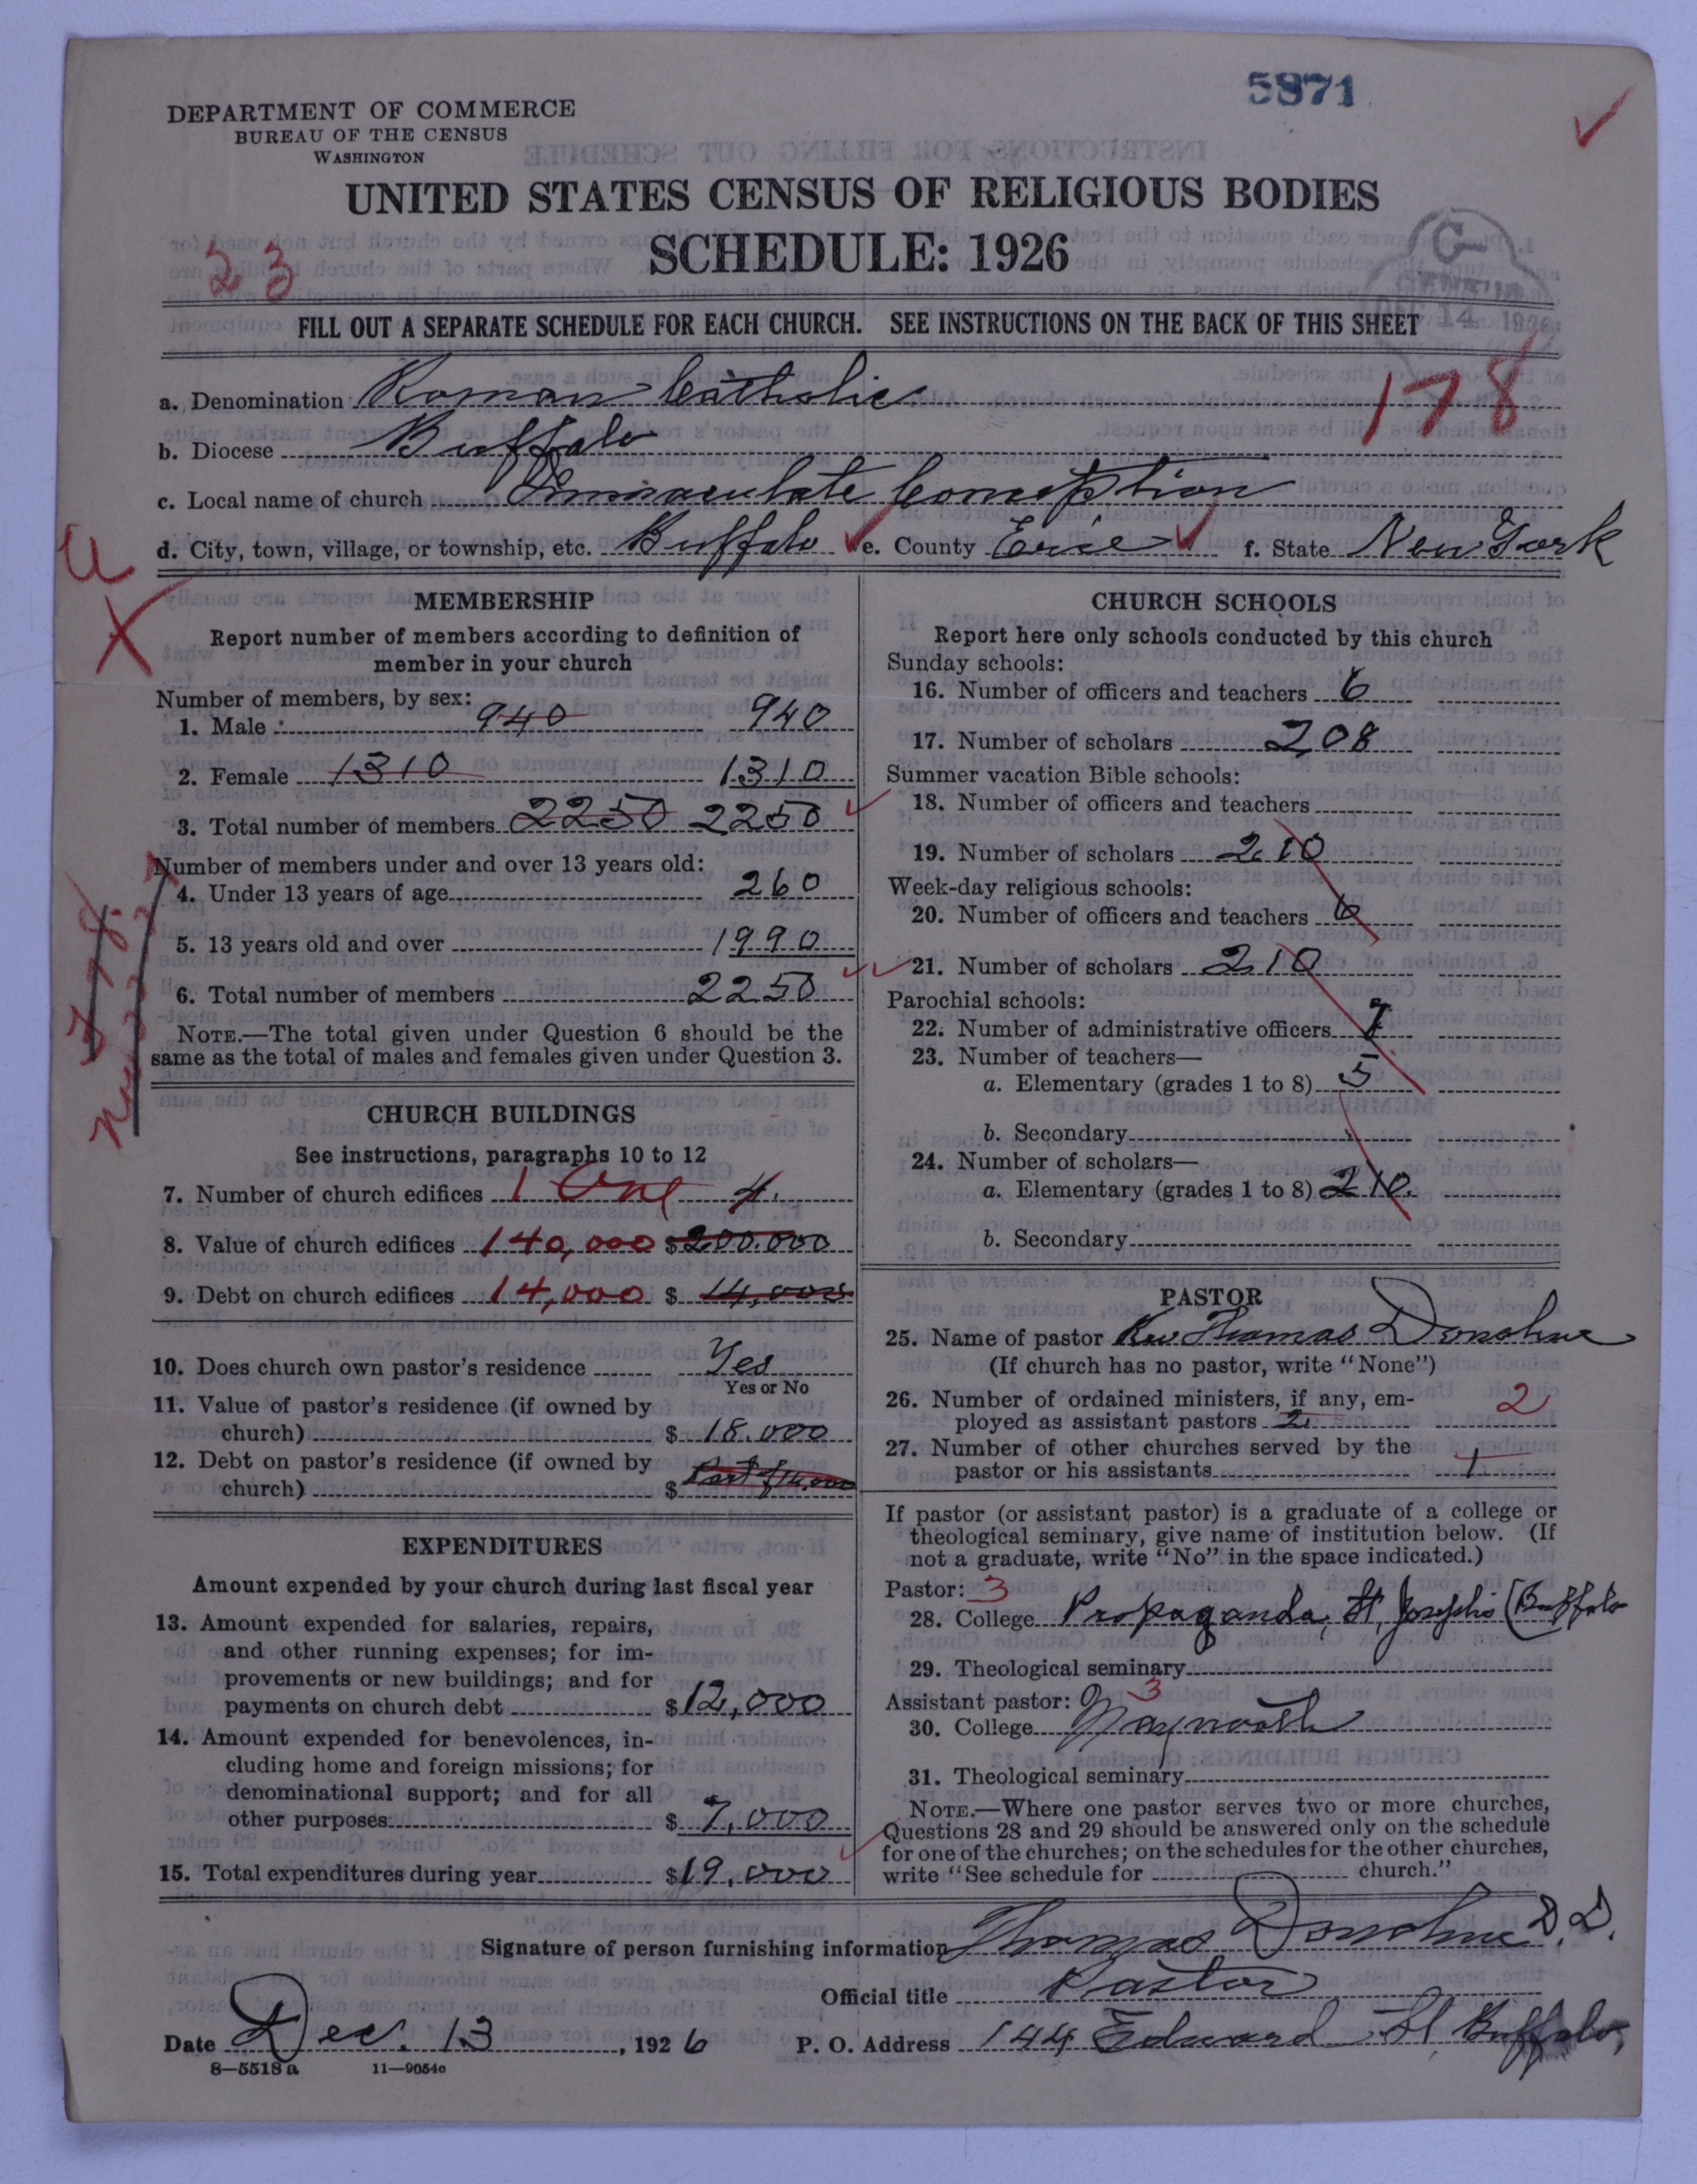 5871
DEPARTMENT OF COMMERCE
BUREAU OF THE CENSUS
WASHINGTON
UNITED STATES CENSUS OF RELIGIOUS BODIES
SCHEDULE: 1926
23
FILL OUT A SEPARATE SCHEDULE FOR EACH CHURCH. SEE INSTRUCTIONS ON THE BACK OF THIS SHEET
178
a. Denomination Roman Catholic
b. Diocese Buffalo
c. Local name of church Immaculate Conception
d. City, town, village, or township, etc. Buffalo e. County Erie f. State New York
MEMBERSHIP
Report number of members according to definition of
member in your church
Number of members, by sex:
1. Male 940 940
2. Female 1310 1310
3. Total number of members 2250 2250
Number of members under and over 13 years old:
4. Under 13 years of age 260
5. 13 years old and over 1990
6. Total number of members 2250
NOTE.—The total given under Question 6 should be the
same as the total of males and females given under Question 3.
CHURCH BUILDINGS
See instructions, paragraphs 10 to 12
7. Number of church edifices 1 One 4.
8. Value of church edifices 140,000 $200.000
9. Debt on church edifices 14,000 $ 14,000
10. Does church own pastor's residence Yes
Yes or No
11. Value of pastor's residence (if owned by
church) $ 18.000
12. Debt on pastor's residence (if owned by
church) $ Part of 14,000
EXPENDITURES
Amount expended by your church during last fiscal year
13. Amount expended for salaries, repairs,
and other running expenses; for im-
provements or new buildings; and for
payments on church debt $12,000
14. Amount expended for benevolences, in-
cluding home and foreign missions; for
denominational support; and for all
other purposes $ 7,000
15. Total expenditures during year $19,000
CHURCH SCHOOLS
Report here only schools conducted by this church
Sunday schools:
16. Number of officers and teachers 6
17. Number of scholars 208
Summer vacation Bible schools:
18. Number of officers and teachers
19. Number of scholars 210
Week-day religious schools:
20. Number of officers and teachers 6
21. Number of scholars 210
Parochial schools:
22. Number of administrative officers
23. Number of teachers—
a. Elementary (grades 1 to 8) 5
b. Secondary
24. Number of scholars—
a. Elementary (grades 1 to 8) 210.
b. Secondary
PASTOR
25. Name of pastor Rev Thomas Donohue
(If church has no pastor, write "None")
26. Number of ordained ministers, if any, em-
ployed as assistant pastors 2 2
27. Number of other churches served by the
pastor or his assistants
If pastor (or assistant pastor) is a graduate of a college or
theological seminary, give name of institution below. (If
not a graduate, write "No" in the space indicated.)
Pastor: 3
28. College Propaganda, St, Josephs (Buffalo
29. Theological seminary
Assistant pastor: 3
30. College Maynooth
31. Theological seminary
NOTE.—Where one pastor serves two or more churches,
Questions 28 and 29 should be answered only on the schedule
for one of the churches; on the schedules for the other churches,
write "See schedule for church."
Signature of person furnishing information Thomas Donohue D.D.
Official title Pastor
Date Dec. 13, 1926 P. O. Address 144 Edward St Buffalo,
8—5518 a 11—9054c